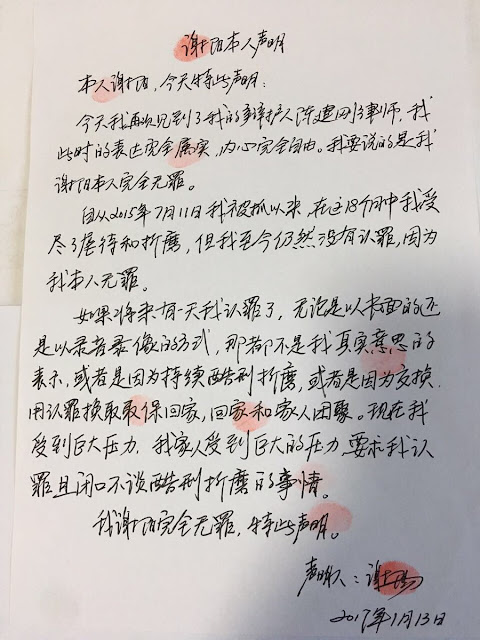 谢阳本人声明
本人谢阳，今天特此声明：
今天我再次见到了我的辩护人陈建刚律师，我
此时的表达完全属实，内心完全自由。我要说的是我
谢阳本人完全无罪。
自从2015年7月11日我被抓以来，在这18个月中我受
尽了虐待和折磨，但我至今仍然没有认罪，因为
我本人无罪。
如果将来有一天我认罪了，无论是以书面的还
是以录音录像的方式，那都不是我真实意思的
表示，或者是因为持续酷刑折磨，或者是因为交换，
用认罪换取取保回家，回家和家人团聚。现在我
受到巨大压力，我家人受到巨大的压力，要求我认
罪且闭口不谈酷刑折磨的事情。
我谢阳完全无罪，特此声明。
声明人：谢阳
2017年1月13日